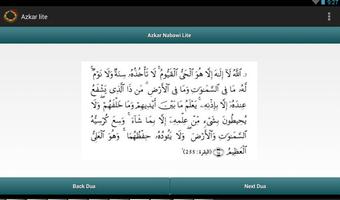 9:27
Azkar lite
Azkar Nabawi Lite
﴿ اللَّهُ لَآ إِلَٰهَ إِلَّا هُوَ الْحَيُّ الْقَيُّومُ ۚ لَا تَأْخُذُهُ سِنَةٌ وَلَا نَوْمٌ ۚ
لَّهُ مَا فِي السَّمَٰوَٰتِ وَمَا فِي الْأَرْضِ ۗ مَن ذَا الَّذِي يَشْفَعُ
عِندَهُ إِلَّا بِإِذْنِهِ ۚ يَعْلَمُ مَا بَيْنَ أَيْدِيهِمْ وَمَا خَلْفَهُمْ ۖ وَلَا
يُحِيطُونَ بِشَيْءٍ مِّنْ عِلْمِهِ إِلَّا بِمَا شَآءَ ۚ وَسِعَ كُرْسِيُّهُ
السَّمَٰوَٰتِ وَالْأَرْضَ ۖ وَلَا يَئُودُهُ حِفْظُهُمَا ۚ وَهُوَ الْعَلِيُّ
الْعَظِيمُ ﴾ (البقرة: 255)
Back Dua
Next Dua